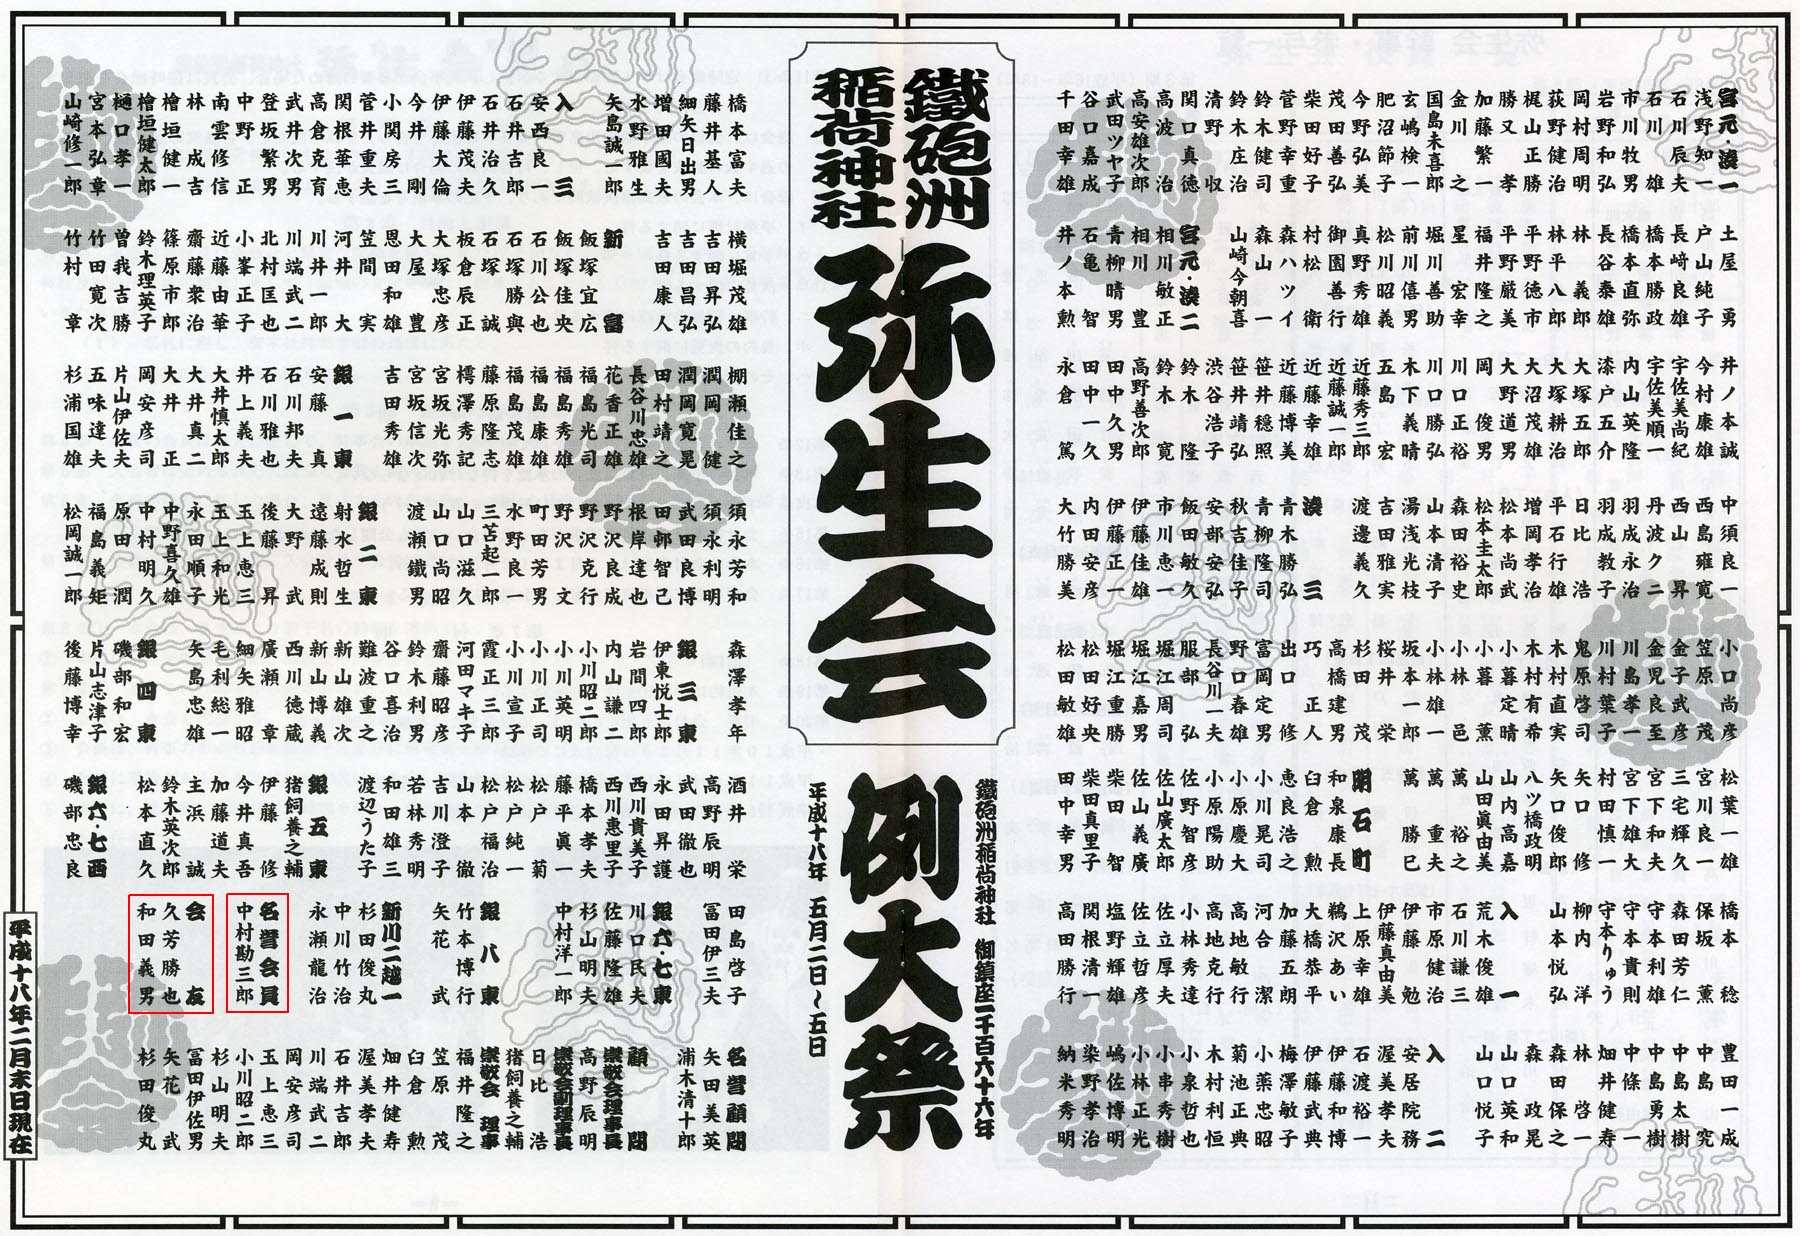 宮元・湊一
浅野知一
石川辰夫
石川雄
市川牧男
岩野和弘
岡村周明
荻野健治
梶山正勝
勝又孝
加藤繁一
金川之
国島未喜郎
玄嶋検一
肥沼節子
今野弘美
茂田善弘
柴田好子
菅野幸重
鈴木健司
鈴木庄治
清野収
関口真徳
高波治
高安雄次郎
武田ツヤ子
谷口嘉成
千田幸雄
土屋勇
戸山純子
長﨑良雄
橋本勝政
橋本直弥
長谷泰雄
林義郎
林平八郎
平野徳市
平野厳美
福井隆之
星宏幸
堀川善助
前川僖男
松川昭義
真野秀雄
御園善行
村松衛
森ハツイ
森山一
山崎今朝喜
宮元・湊二
相川敏正
相川豊
青柳晴男
石亀智
井ノ本勲
井ノ本誠
今村康雄
宇佐美尚紀
宇佐美順一
内山英隆
漆戸五介
大塚五郎
大塚耕治
大沼茂雄
大野道男
岡俊男
川口正裕
川口勝弘
木下義晴
五島宏
近藤秀三郎
近藤誠一郎
近藤幸雄
近藤博美
笹井穏照
笹井靖弘
渋谷浩子
鈴木隆
鈴木寛
高野善次郎
田中久男
田中久
永倉篤
中須良一
西島雍寛
西山昇
丹波ク二
羽成永治
羽成教子
日比浩
平石行雄
増岡孝治
松本尚武
松本圭太郎
森田裕史
山本清子
湯浅光枝
吉田雅実
渡邊義久
湊三
青木勝弘
青柳隆司
秋吉佳子
安部安弘
飯田敏久
市川恵一
伊藤佳雄
伊藤正一
内田好彦
大竹勝美
小口尚彦
笠原茂
金児良至
金子武彦
川島孝一
川村葉子
鬼原啓司
木村直実
木村有希
小暮定晴
小暮薫
小林邑
小林雄一
坂本一郎
桜井栄
杉田茂
高橋建男
巧正人
出口修
富岡定男
野口春雄
長谷川一夫
服部弘
堀江周司
堀江嘉男
堀江重勝
松田好央
松田敏幸
松葉一雄
宮川良一
三宅輝久
宮下和夫
宮下雄大
村田慎一
矢口修
矢口俊郎
八ツ橋政明
山内高嘉
山田眞由美
萬裕之
萬重夫
萬勝巳
明石町
和泉康長
臼倉勲
恵良浩之
小川晃司
小原慶大
小原陽助
佐野智彦
佐山廣太郎
佐山義廣
柴田智
柴田真里子
田中幸男
橋本稔
保坂薫
森田芳仁
守本利雄
守本貴則
守本りゅう
柳内洋
山本悦弘
入一
荒木俊雄
石川謙三
市原健治
伊藤勉
伊藤真由美
上原幸雄
鵜沢あい
大橋恭平
加藤五朗
河合潔
高地敏行
高地克行
小林秀達
佐立厚夫
佐立哲彦
塩野輝雄
関根清一
高田勝行
豊田一成
中島究
中島太樹
中島勇樹
中條一
畑井健寿
林啓一
森田保之
森政晃
山口英和
山口悦子
入二
安居院務
渥美孝夫
石渡裕一
伊藤和博
伊藤武典
梅澤敏子
小薬忠昭
菊池正典
木村利恒
小泉哲也
小串秀樹
小林正光
嶋佐博明
染野孝治
納米秀明
鐵砲洲稲荷神社
弥生会
例大祭
鐵砲洲稲荷神社 御鎮座一千百六十六年
平成十八年 五月二日〜五日
橋本富夫
藤井基人
細矢日出男
増田國夫
水野雅生
矢島誠一郎
入三
安西良一
石井吉郎
石井治久
伊藤茂夫
伊藤大倫
今井剛
小関房三
菅井重夫
関根華恵
高倉克育
武井次男
登坂繁男
中野正
南雲修信
林成吉
檜垣健一
檜垣健太郎
樋口孝一
宮本弘章
山崎修一郎
横堀茂雄
吉田昇弘
吉田昌弘
吉田康人
新富
飯塚宜広
飯塚佳央
石川公也
石塚勝與
石塚誠
板倉辰正
大塚忠彦
大屋豊
恩田和雄
笠間実
河井大
川井一郎
川端武二
北村匡也
小峯正子
近藤由華
齋藤衆治
篠原市郎
鈴木理英子
曽我吉勝
竹田寛次
竹村章
棚瀬佳之
潤岡健
潤岡寛晃
田村靖之
長谷川忠雄
花香正雄
福島光司
福島秀雄
福島康雄
福島茂雄
藤原隆志
樗澤秀記
宮坂光弥
宮坂信次
吉田秀雄
銀一東
安藤真
石川邦夫
石川雅也
井上義夫
大井慎太郎
大井真二
大井正
岡安彦司
片山伊佐夫
五味達夫
杉浦国雄
須永芳和
須永利明
武田良博
田部智己
根岸達也
野沢良成
野沢克行
野沢文
町田芳男
水野良一
三苫起二郎
山口滋久
山口尚昭
渡瀬鐵男
銀二東
射水哲生
遠藤成則
大野武
後藤昇
玉上恵三
玉上和光
永田順子
中野喜久雄
中村明久
原田潤
福島義矩
松岡誠一郎
森澤孝年
銀三東
伊東悦士郎
岩間四郎
内山謙二
小川昭二郎
小川英明
小川正司
小川宣子
霞正三郎
河田マキ子
齋藤昭彦
鈴木利男
谷口喜治
難波義之
新山雄次
新山博義
西川徳蔵
廣瀬章
細矢雅昭
毛利総一
矢島忠雄
銀四東
磯部和宏
片山志津子
後藤博幸
酒井栄
高野辰明
武田徹也
永田昇護
西川貴美子
西川惠里子
橋本孝夫
藤平眞一
松戸菊
松戸純一
松戸福治
山本徹
吉川澄子
若林秀明
和田雄三
渡辺うた子
銀五東
猪飼養之輔
伊藤修
今井真吾
加藤道夫
主浜誠
鈴木英次郎
松本直久
銀六・七西
磯部忠良
田島啓子
冨田伊三夫
銀六・七東
川口民夫
佐藤隆雄
杉山明夫
中村洋一郎
銀八東
竹本博行
矢花武
新川二越一
杉田俊丸
中川竹治
永瀬龍治
名誉会員
中村勘三郎
会友
久芳勝也
和田義男
名誉顧問
矢田美英
浦木清十郎
顧問
崇敬会理事長
高野辰明
崇敬会副理事長
日比浩
猪飼養之輔
崇敬会理事
福井隆之
笠原茂
臼倉勲
畑井健寿
渥美孝夫
石井吉郎
川端武二
岡安彦司
玉上恵三
小川昭二郎
杉山明夫
冨田伊佐男
矢花武
杉田俊丸
平成十八年二月末日現在